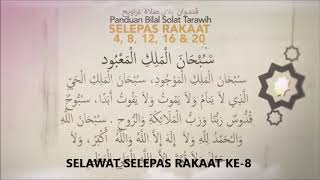 ڤندوان بلال صلاة تراويح
Panduan Bilal Solat Tarawih
SELEPAS RAKAAT
4, 8, 12, 16 & 20
سُبْحَانَ الْمَلِكِ الْمَعْبُودِ
سُبْحَانَ الْمَلِكِ الْمَوْجُودِ، سُبْحَانَ الْمَلِكِ الْحَيِّ
الَّذِي لَا يَنَامُ وَلَا يَمُوتُ وَلَا يَفُوتُ أَبَدًا، سُبُّوحٌ
قُدُّوسٌ رَبُّنَا وَرَبُّ الْمَلَائِكَةِ وَالرُّوحِ، سُبْحَانَ اللهِ
وَالْحَمْدُ لِلَّهِ وَلَا إِلَهَ إِلَّا اللهُ وَاللهُ أَكْبَرُ، وَلَا
SELAWAT SELEPAS RAKAAT KE-8